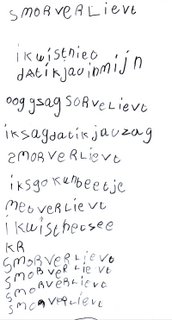 SMORVERLIEVT
ikwistniet
DATikjouinmijn
ooggsagSORVELIEVT
iksagdatikjouzag
SMORVERLIEVT
iksgokunbeetje
MeTVERLIEVT
ikwistHetsee
KR
SMORVERLIEVT
SMORVERLIEVT
SMORVERLIEVT
SMORVERLIEVT